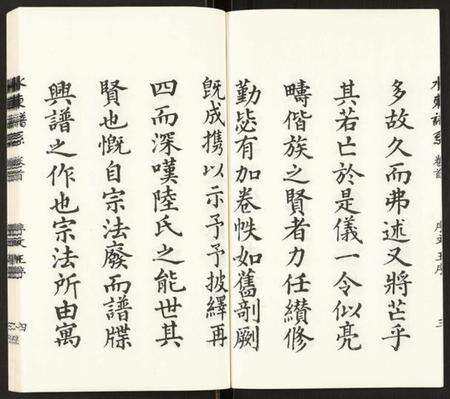 多故久而弗述又將芒乎
其若亡於是儀一令似亮
疇偕族之賢者力任纘修
勤毖有加卷帙如舊剞劂
旣成携以示予予披繹再
四而深嘆陸氏之能世其
賢也慨自宗法廢而譜牒
興譜之作也宗法所由寓